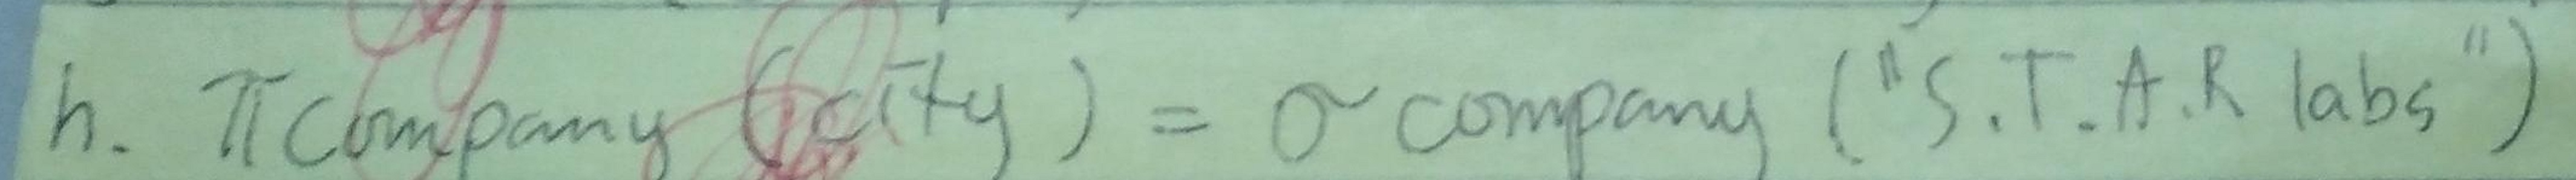 h. π company (city) = σ company ("S.T.A.R labs")